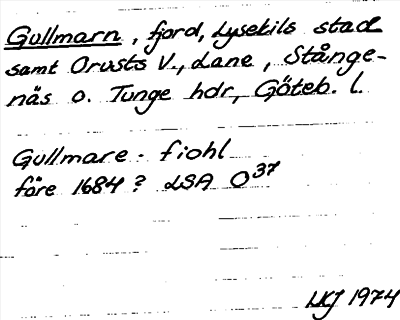 Gullmarn, fjord, Lysekils stad
samt Orusts V., Lane, Stånge-
näs o. Tunge hdr, Göteb. l.
Gullmare - fiohl
före 1684? LSA O37
LKJ 1974